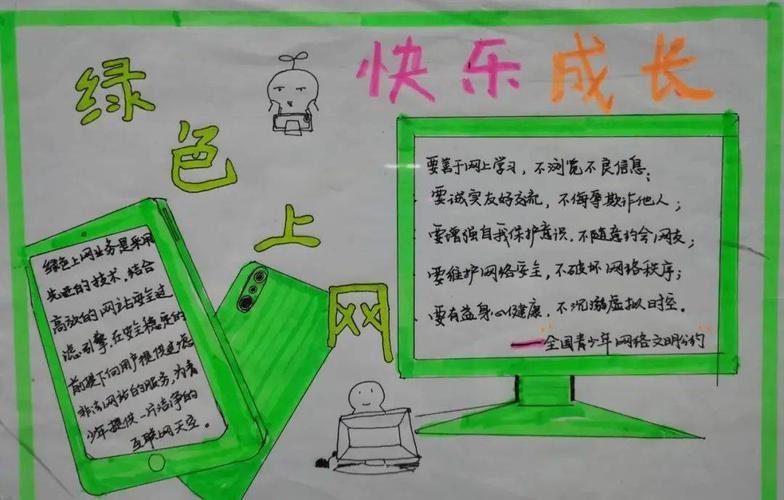 绿色上网
快乐成长
绿色上网业务是采用
先进的技术,结合
高效的网站安全过
滤引擎在安全稳定的
前提下向用户提供过滤
非法网站的服务,为青
少年提供一片洁净的
互联网天空。
要善于网上学习,不浏览不良信息;
要诚实友好交流,不侮辱欺诈他人;
要增强自我保护意识,不随意约会网友;
要维护网络安全,不破坏网络秩序;
要有益身心健康,不沉溺虚拟时空。
——全国青少年网络文明公约